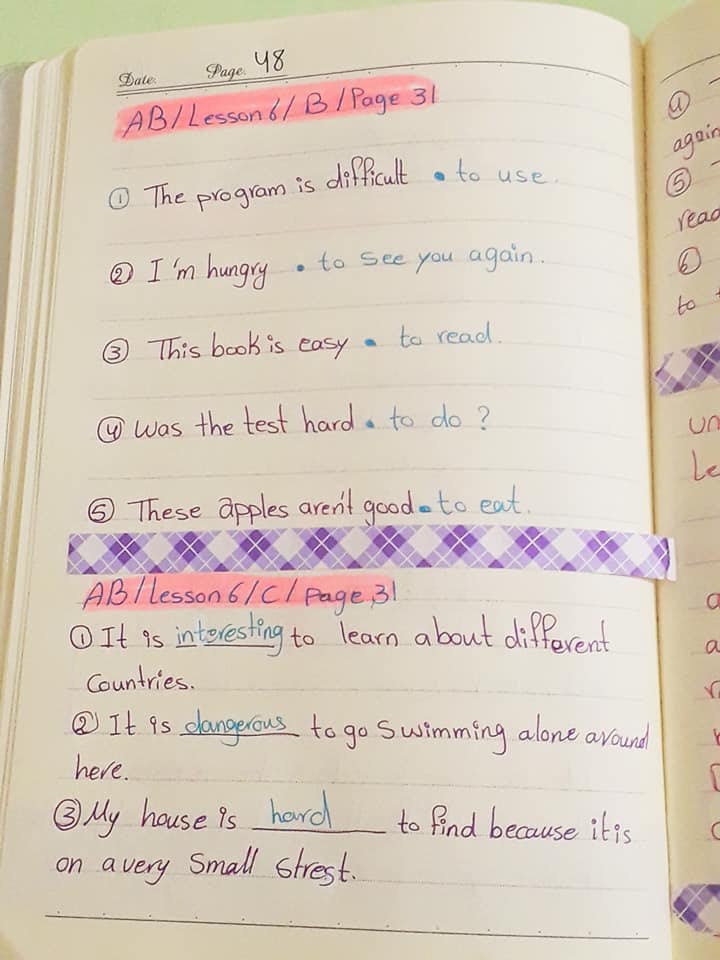 Date. Page. 48
AB/Lesson 6/B/Page 31
① The program is difficult • to use.
② I'm hungry • to see you again.
③ This book is easy • to read.
④ Was the test hard • to do?
⑤ These apples aren't good • to eat.
AB/Lesson 6/C/Page 31
① It is interesting to learn about different
Countries.
② It is dangerous to go swimming alone around
here.
③ My house is hard to find because it is
on a very Small Strest.
④
again
⑤
read
⑥
to
un
Le